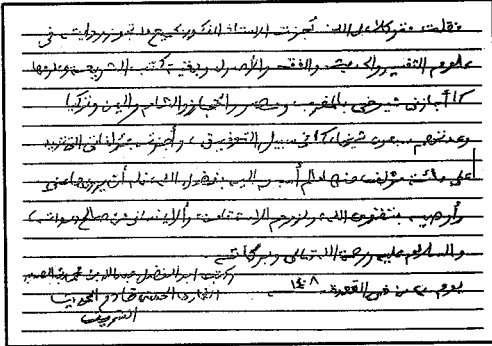 فقلت متوكلا على الله أجزت الأستاذ المذكور بجميع ما تجوز روايته في
علوم التفسير والحديث والفقه والأصول وبقية كتب الشريعة وعلومها
كما أجازني شيوخي بالمغرب ومصر والحجاز والشام واليمن وتركيا
وعدتهم سبعون شيخا كما في سبيل التوفيق، وأجزته بمؤلفاتي التي تزيد
على مائة مؤلف منها ما لم أنشر إليه بفضل الله أن يرويها عني
وأوصيه بتقوى الله ولزوم الاستقامة وألا ينساني من صالح دعواته
والسلام عليه ورحمة الله تعالى وبركاته
وكتب أبو الفضل عبد الله بن محمد بن الصديق
الغماري الحسني خادم الحديث
الشريف
يوم من ذي القعدة ١٤٠٨